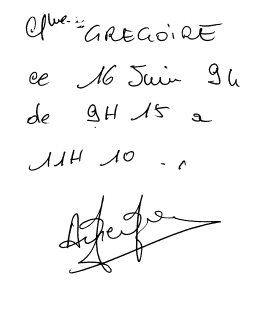 GREGOIRE
ce 16 Juin 94
de 9H 15 a
11H 10